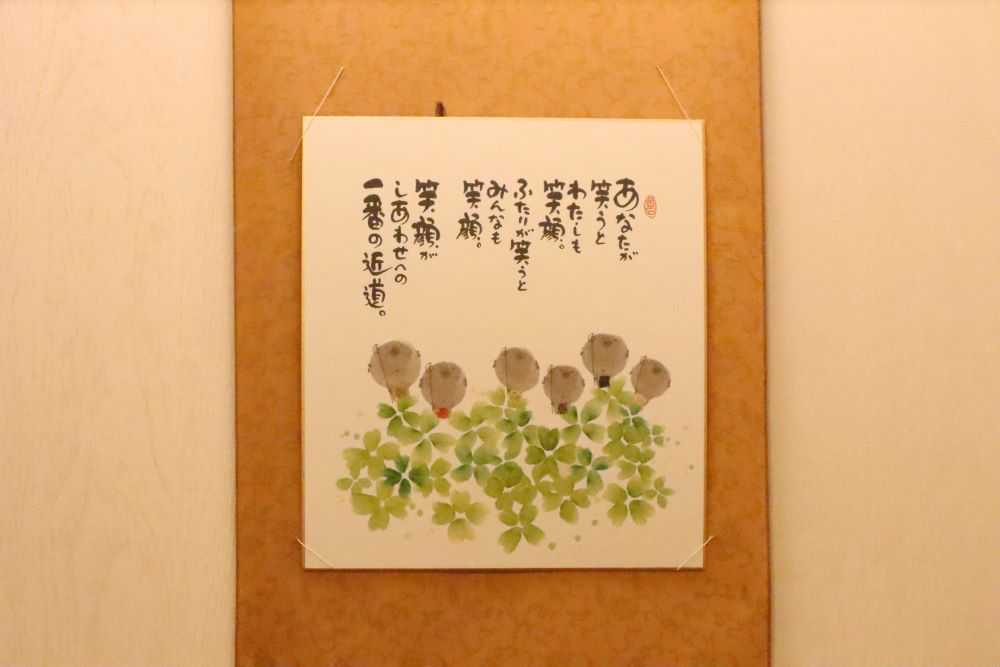 あなたが
笑うと
わたしも
笑顔。
ふたりが笑うと
みんなも
笑顔。
笑顔が
しあわせへの
一番の近道。